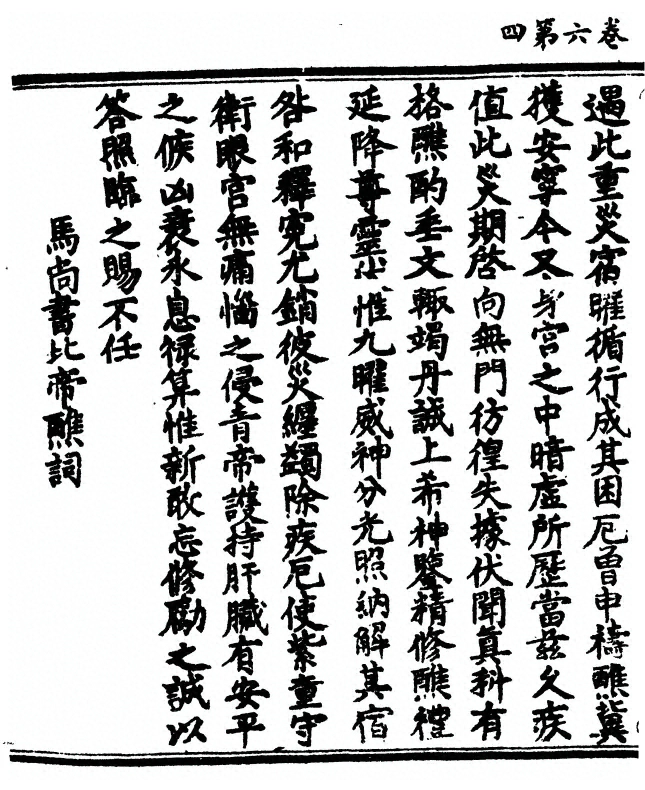 卷六第四
遇此重災宿曜循行成其困厄曾申禱醮冀
獲安寧今又身宮之中暗虛所歷當茲久疾
值此災期啓向無門彷徨失據伏聞真科有
格醮酌垂文輙竭丹誠上希神鑒精修醮禮
延降尊靈伏惟九曜威神分光照納解其宿
咎和釋寃尤銷彼災纏蠲除疾厄使紫童守
衛眼宮無痛惱之侵青帝護持肝臟有安平
之候凶衰永息禄算惟新敢忘修勵之誠以
答照臨之賜不任
馬尚書北帝醮詞